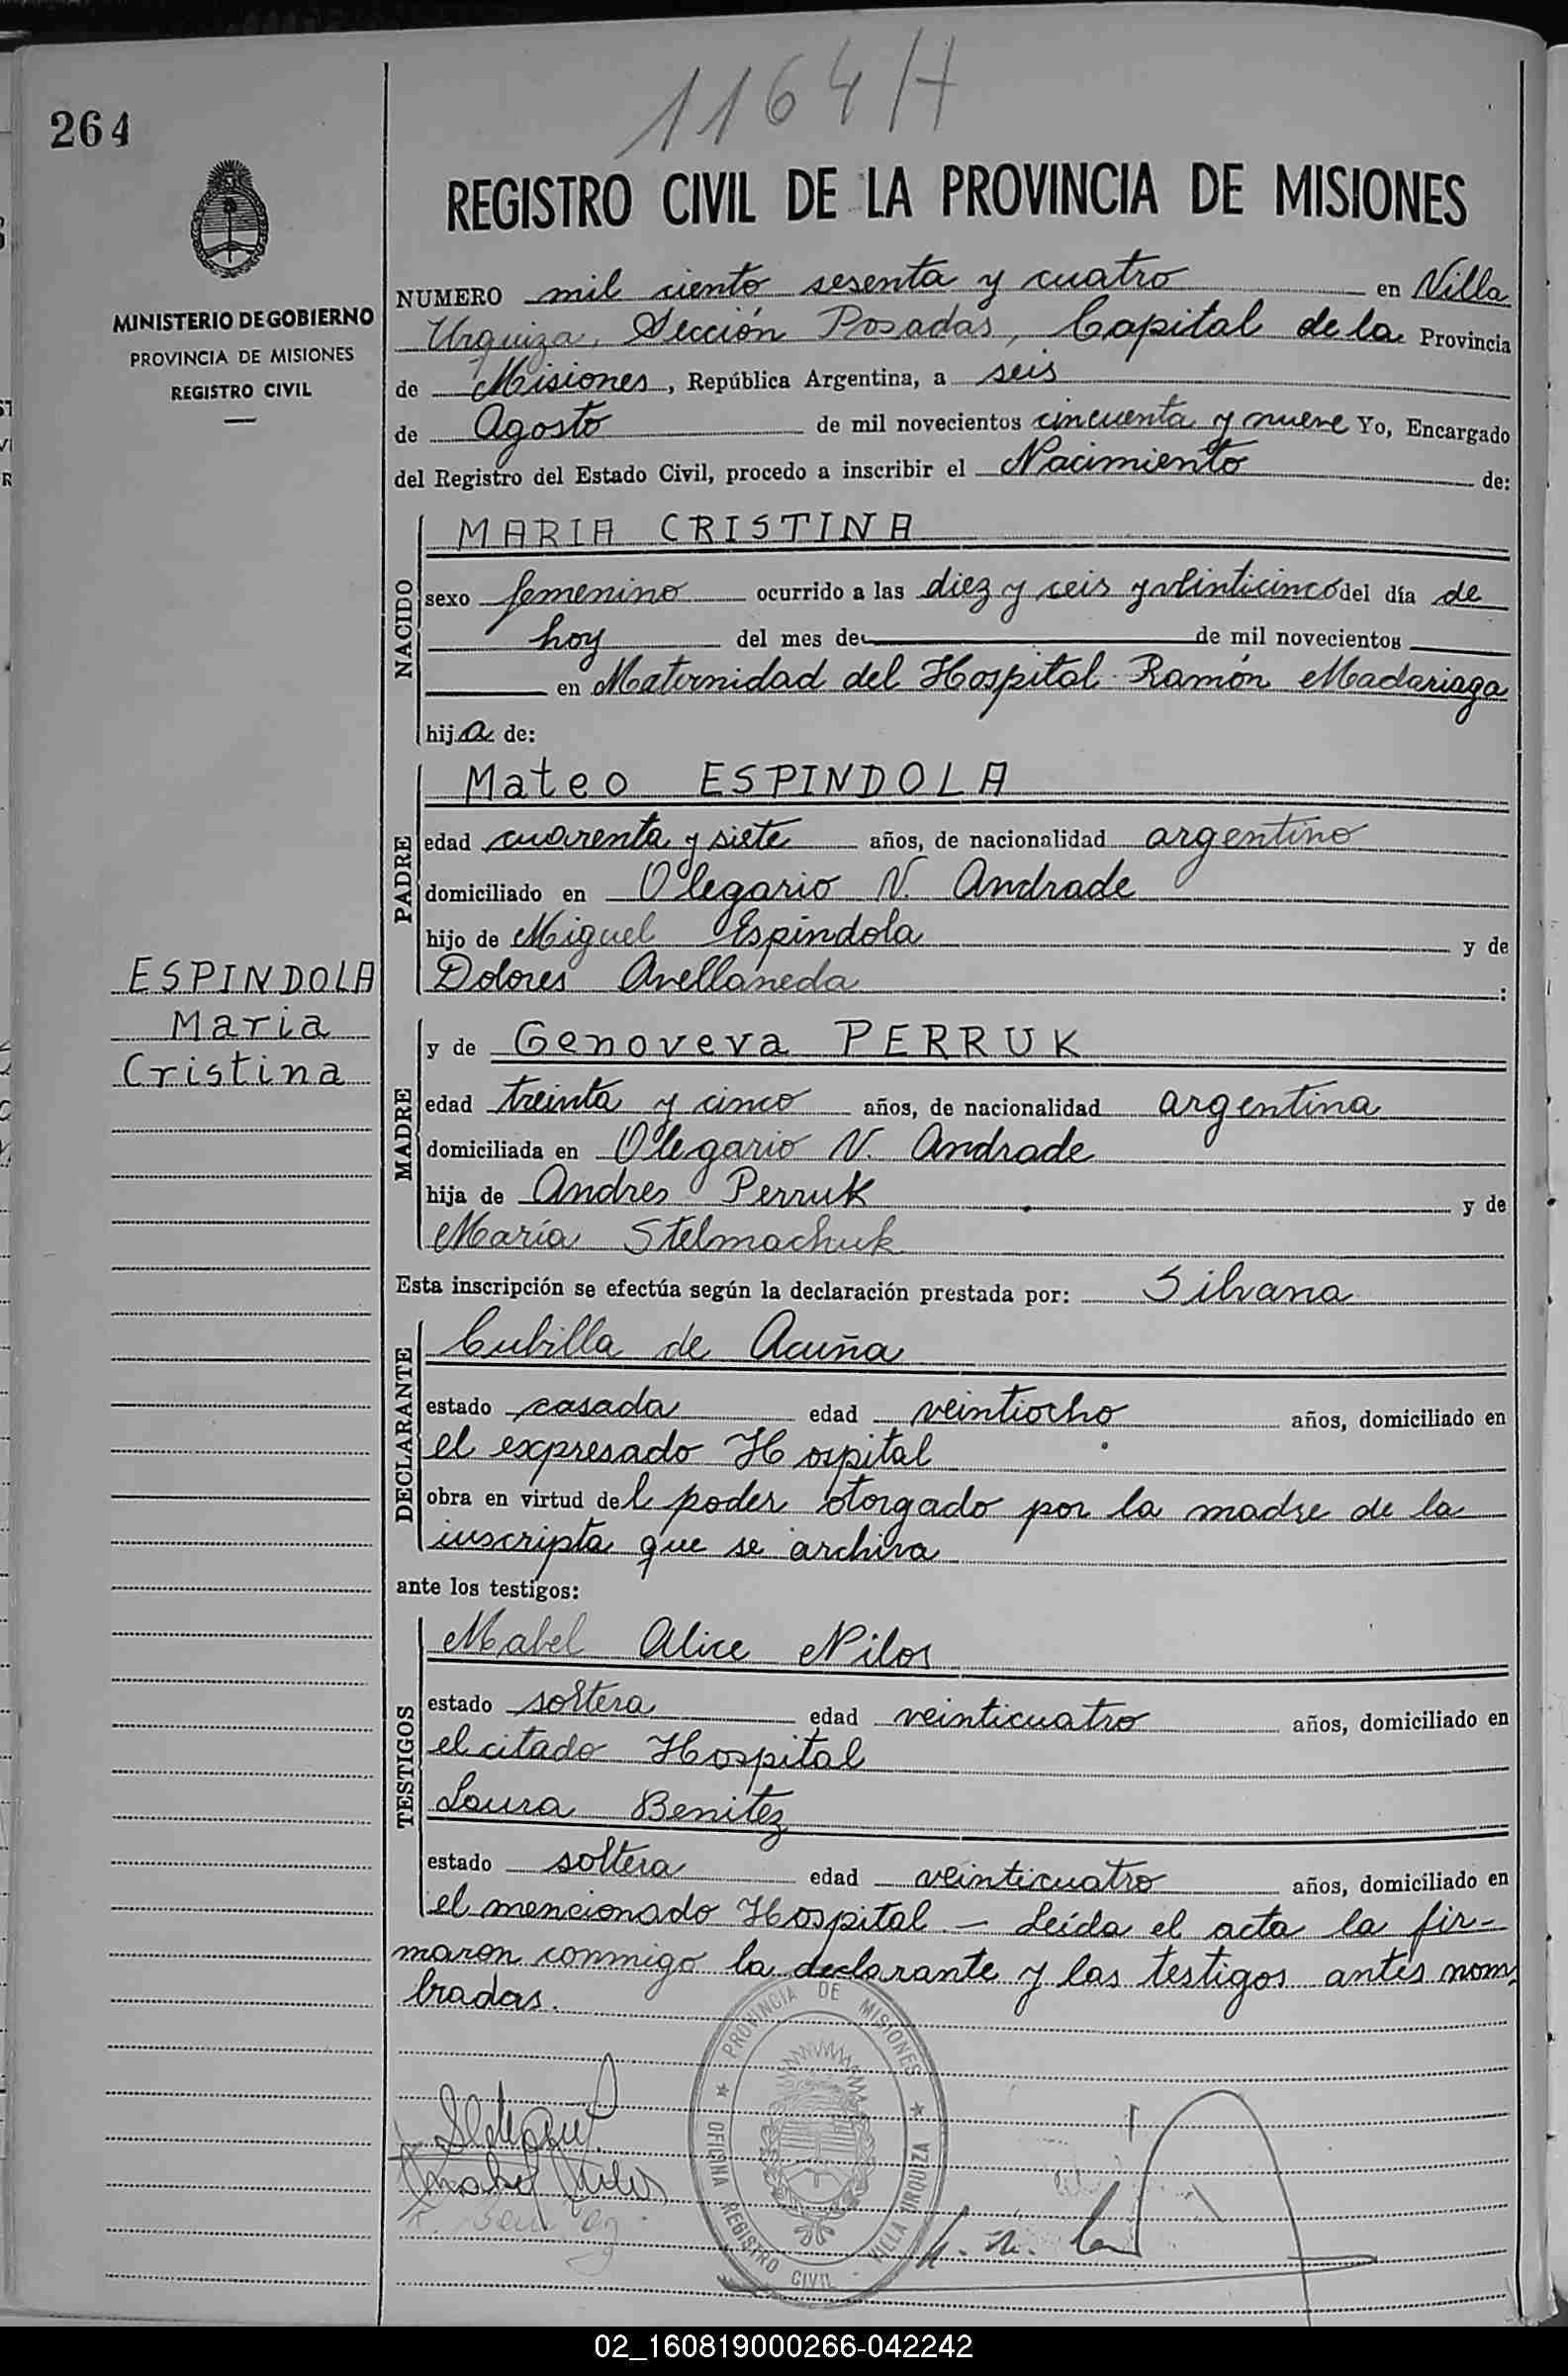 1164 H
264
REGISTRO CIVIL DE LA PROVINCIA DE MISIONES
MINISTERIO DE GOBIERNO
PROVINCIA DE MISIONES
REGISTRO CIVIL
NUMERO mil ciento sesenta y cuatro en Villa
Urquiza, Sección Posadas, Capital de la Provincia
de Misiones, República Argentina, a seis
de Agosto de mil novecientos cincuenta y nueve Yo, Encargado
del Registro del Estado Civil, procedo a inscribir el Nacimiento de:
NACIDO
MARIA CRISTINA
sexo femenino ocurrido a las diez y seis y veinticinco del día de
hoy del mes de de mil novecientos
en Maternidad del Hospital Ramón Madariaga
hija de:
PADRE
Mateo ESPINDOLA
edad cuarenta y siete años, de nacionalidad argentino
domiciliado en Olegario V. Andrade
hijo de Miguel Espindola y de
Dolores Avellaneda :
ESPINDOLA
Maria
Cristina
MADRE
y de Genoveva PERRUK
edad treinta y cinco años, de nacionalidad argentina
domiciliada en Olegario V. Andrade
hija de Andres Perruk y de
María Stelmachuk
Esta inscripción se efectúa según la declaración prestada por: Silvana
DECLARANTE
Cubilla de Acuña
estado casada edad veintiocho años, domiciliado en
el expresado Hospital
obra en virtud del poder otorgado por la madre de la
inscripta que se archiva
ante los testigos:
TESTIGOS
Mabel Alice Nilos
estado soltera edad veinticuatro años, domiciliado en
el citado Hospital
Laura Benitez
estado soltera edad veinticuatro años, domiciliado en
el mencionado Hospital — Leída el acta la fir-
maron conmigo la declarante y las testigos antes nom-
bradas.
PROVINCIA DE MISIONES
OFICINA REGISTRO CIVIL - VILLA URQUIZA
02_160819000266-042242